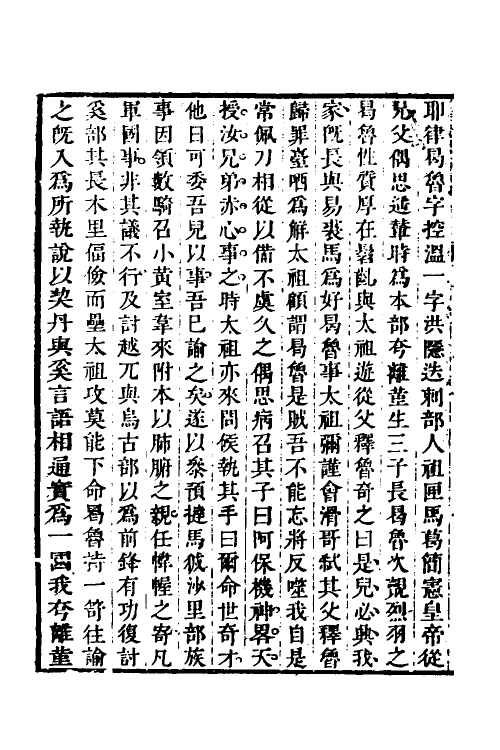 耶律曷魯字控溫一字洪隱迭剌部人祖匣馬葛簡憲皇帝從
兄父偶思遥輦時爲本部夷離堇生三子長曷魯次覿烈羽之
曷魯性質厚在髫齓與太祖遊從父釋魯奇之曰是兒必興我
家旣長與易裘馬爲好曷魯事太祖彌謹會滑哥弑其父釋魯
歸罪臺哂爲解太祖顧謂曷魯是賊吾不能忘將反噬我自是
常佩刀相從以備不虞久之偶思病召其子曰阿保機神畧天
授汝兄弟赤心事之時太祖亦來問候執其手曰爾命世奇才
他日可委吾兒以事吾已諭之矣遂以衆預撻馬狘沙里部族
事因領數騎召小黃室韋來附本以肺腑之親任幃幄之寄凡
軍國事非其議不行及討越兀與烏古部以爲前鋒有功復討
奚部其長木里偪儉而壘太祖攻莫能下命曷魯持一笴往諭
之旣入爲所執說以契丹與奚言語相通實爲一國我夷離堇